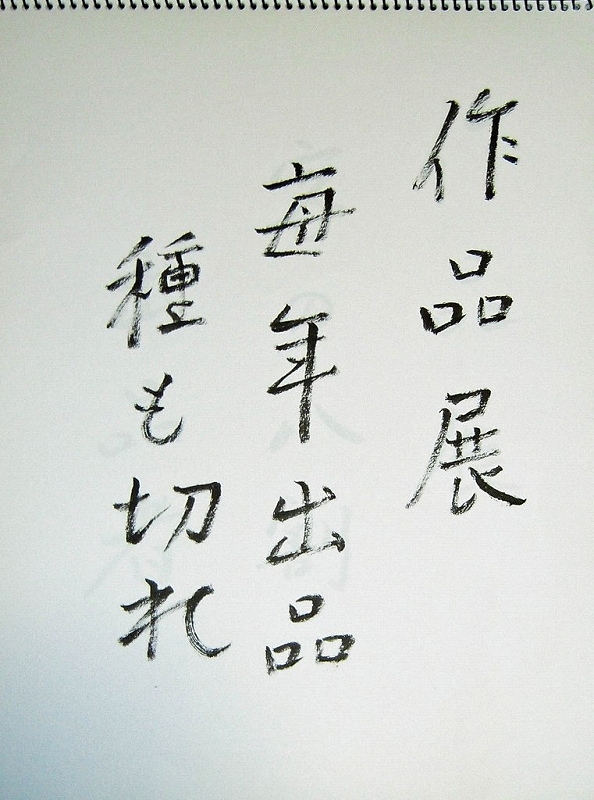 作品展
毎年出品
種も切れ